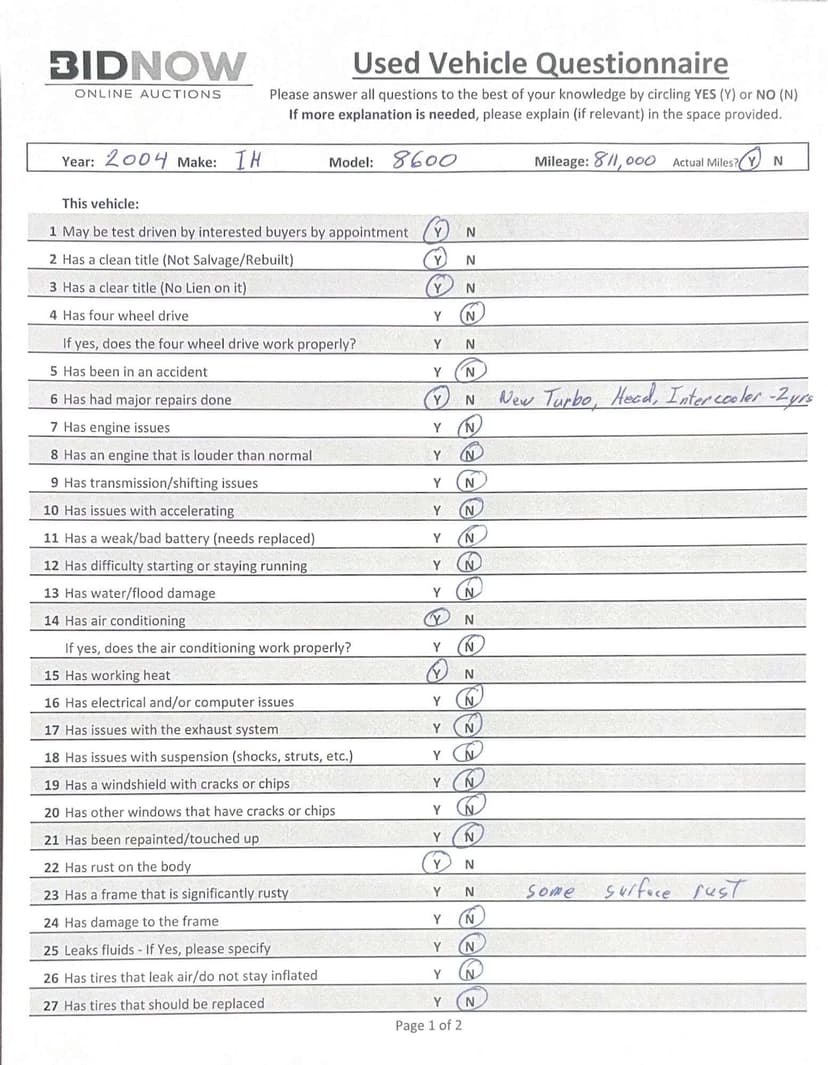 BIDNOW
ONLINE AUCTIONS
Used Vehicle Questionnaire
Please answer all questions to the best of your knowledge by circling YES (Y) or NO (N)
If more explanation is needed, please explain (if relevant) in the space provided.
Year: 2004 Make: IH Model: 8600 Mileage: 811,000 Actual Miles? Y N
This vehicle:
1 May be test driven by interested buyers by appointment Y N
2 Has a clean title (Not Salvage/Rebuilt) Y N
3 Has a clear title (No Lien on it) Y N
4 Has four wheel drive Y N
If yes, does the four wheel drive work properly? Y N
5 Has been in an accident Y N
6 Has had major repairs done Y N New Turbo, Head, Intercooler -2yrs
7 Has engine issues Y N
8 Has an engine that is louder than normal Y N
9 Has transmission/shifting issues Y N
10 Has issues with accelerating Y N
11 Has a weak/bad battery (needs replaced) Y N
12 Has difficulty starting or staying running Y N
13 Has water/flood damage Y N
14 Has air conditioning Y N
If yes, does the air conditioning work properly? Y N
15 Has working heat Y N
16 Has electrical and/or computer issues Y N
17 Has issues with the exhaust system Y N
18 Has issues with suspension (shocks, struts, etc.) Y N
19 Has a windshield with cracks or chips Y N
20 Has other windows that have cracks or chips Y N
21 Has been repainted/touched up Y N
22 Has rust on the body Y N
23 Has a frame that is significantly rusty Y N some surface rust
24 Has damage to the frame Y N
25 Leaks fluids - If Yes, please specify Y N
26 Has tires that leak air/do not stay inflated Y N
27 Has tires that should be replaced Y N
Page 1 of 2